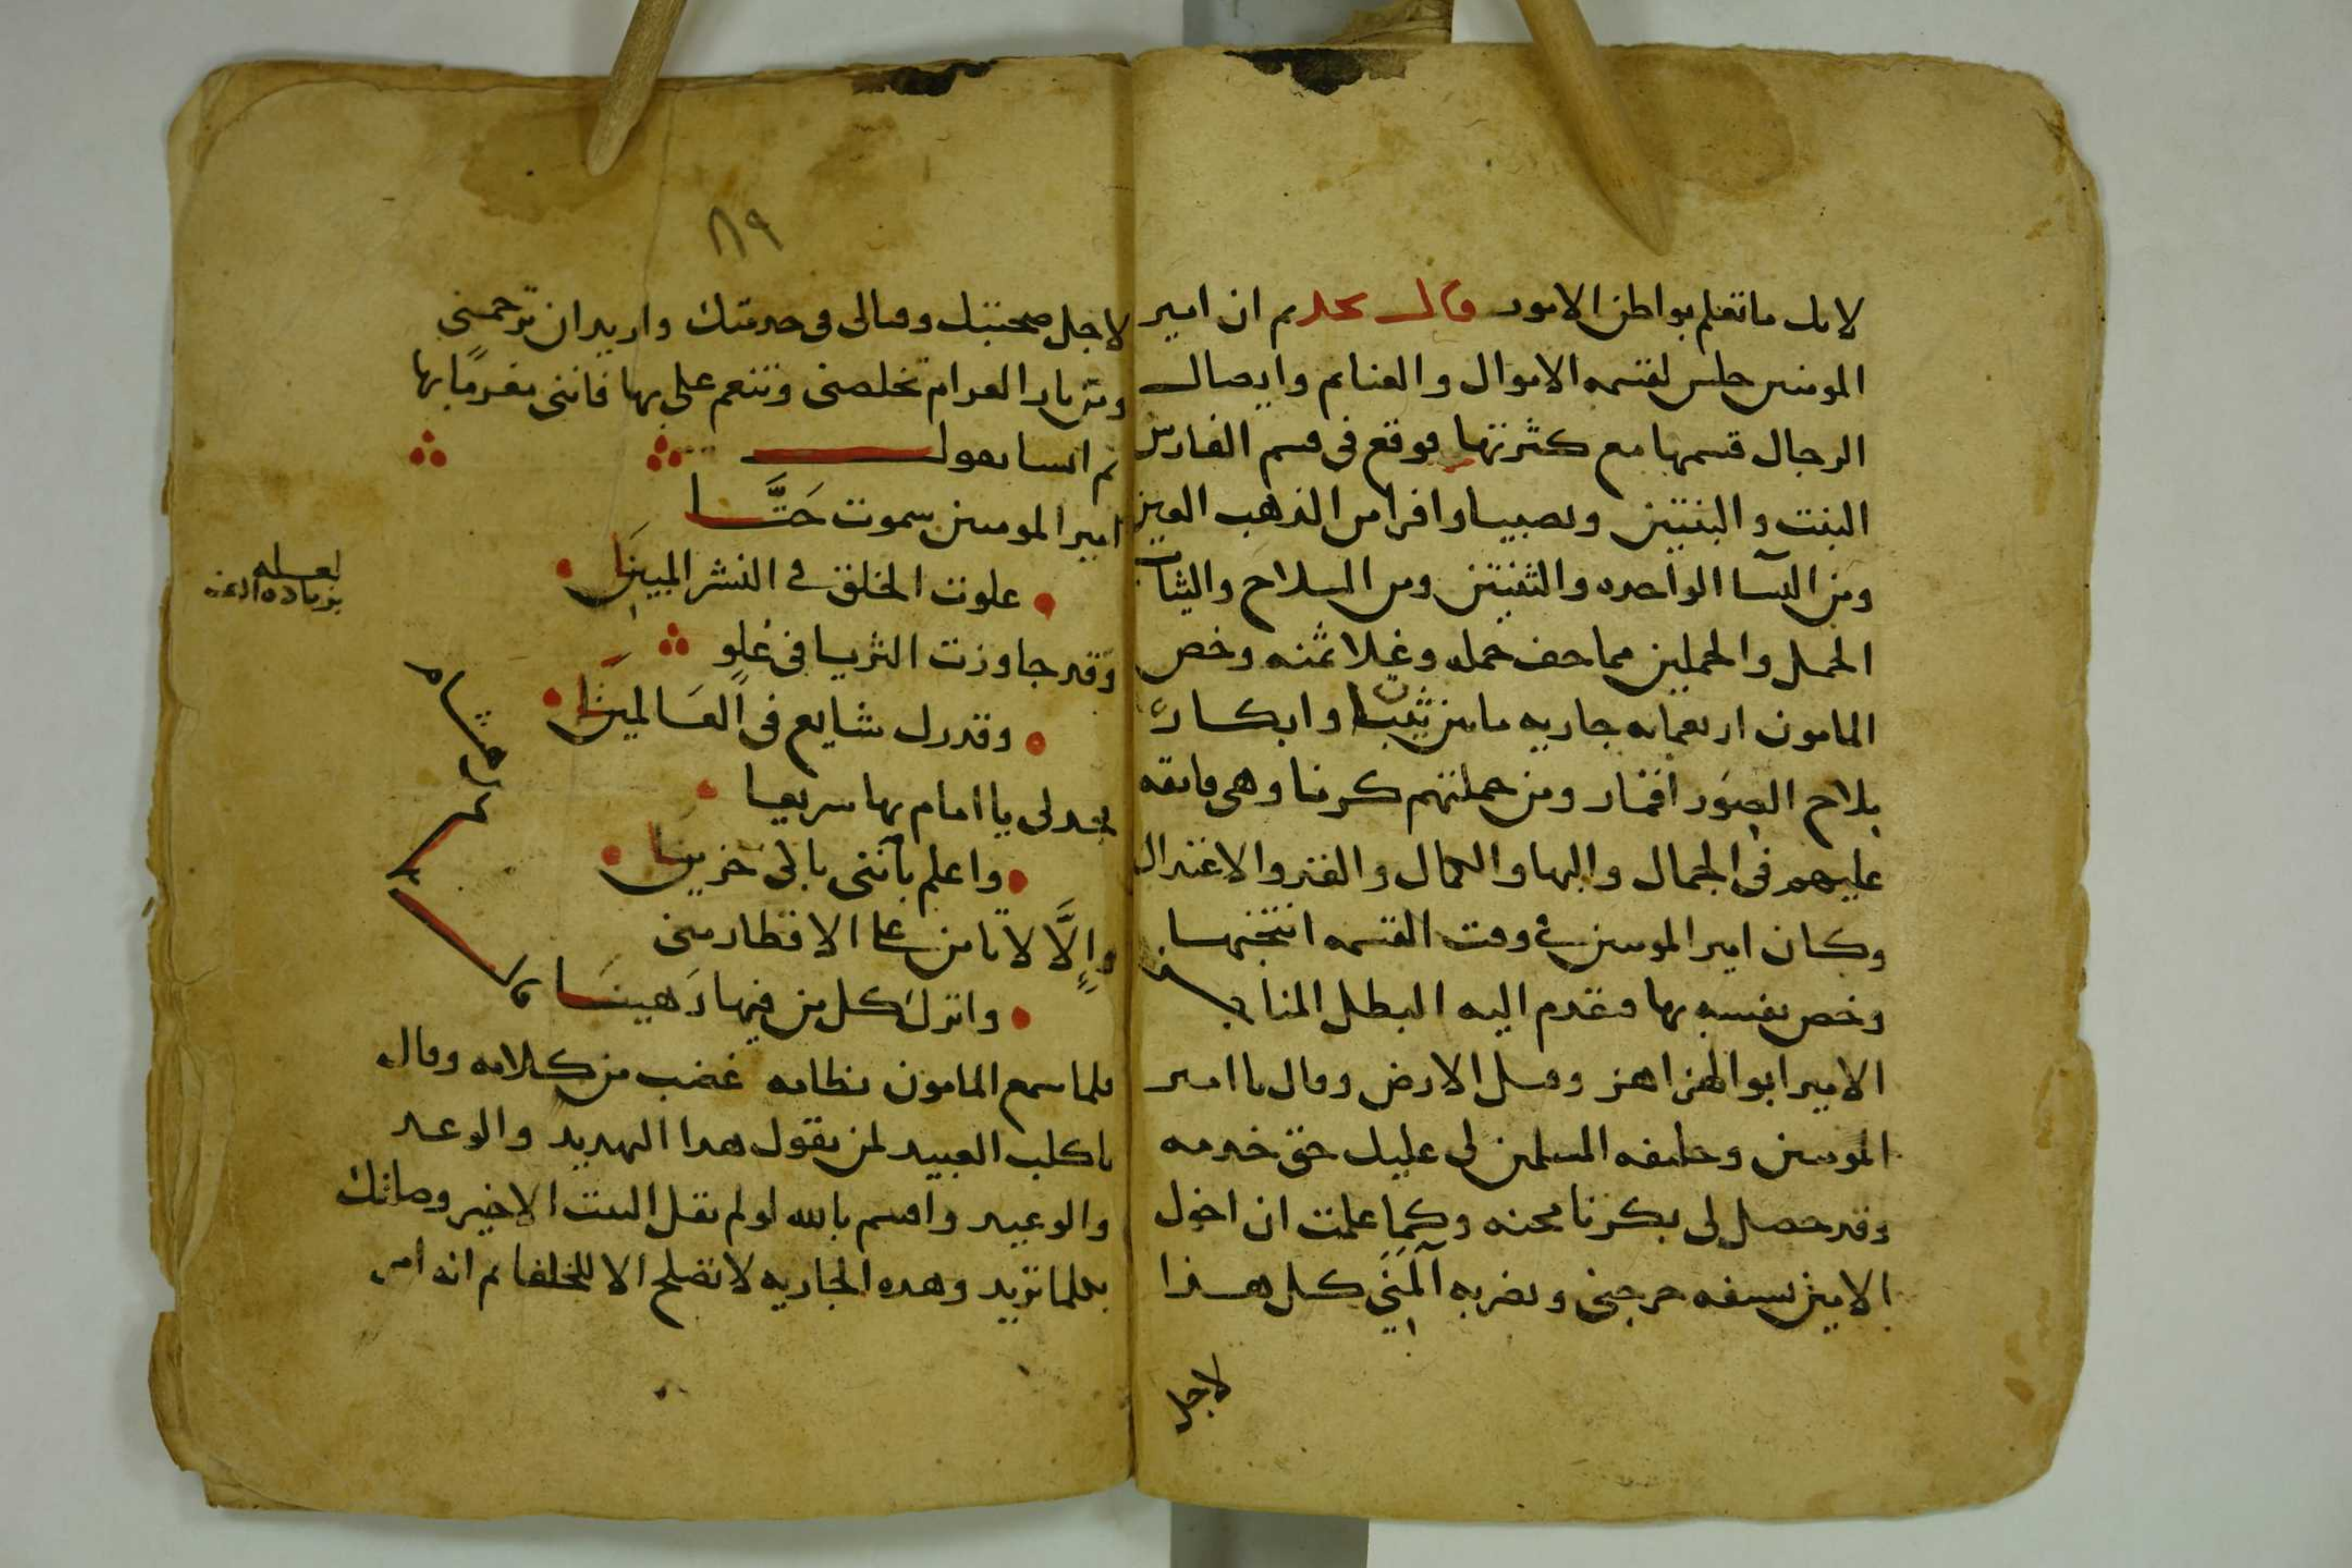 لانك ما تعلم بواطن الامور قال نجد ثم ان امير
المومنين جلس لقسمه الاموال والغنايم وايصال
الرجال قسمها مع كثرتها فوقع فى قسم الفارس
البنت والبنتين ونصيبا وافرا من الذهب العين
ومن النسآ الواحده والثنتين ومن السلاح والثياب
الحمل والحملين مما خف حمله وغلا ثمنه وخص
المامون اربعمايه جاريه مابين ثيبات وابكار
بلاح الصور اقمار ومن جملتهم كرنا وهى فايقه
عليهم فى الجمال والبها والكمال والقد والاعتدال
وكان امير المومنين فى وقت القسمه انتخبها
وخص نفسه بها فتقدم اليه البطل المناجز
الامير ابو الهزاهز وقبل الارض وقال يا امير
المومنين وخليفه المسلمين لى عليك حق خدمه
وقد حصل لى بكرنا محنه وكما علمت ان اخول
الامين بسيفه جرحنى وبضربه آلمنى كل هذا
لاجل
٨٩
لاجل محبتك وقتالى فى خدمتك واريد ان ترحمنى
ومن نار الغرام تخلصنى وتنعم على بها فاننى مغرمًا بها
ثم انشا يقول
امير المومنين سموت حَتَّا
علوت الخلق فى النشر المبينَا
وقد جاوزت الثريا فى علوٍ
وقدرك شايع فى العَالمينَا
فجد لى يا امام بها سريعا
واعلم بأننى باكى حزينَا
وإلَّا لا تامن على الاقطار منى
واترك كل من فيها رَهينَا
لعله
بزياده
فلما سمع المامون نظامه غضب من كلامه وقال
يا كلب العبيد لمن تقول هدا التهديد والوعد
والوعيد واقسم بالله لو لم تقل البيت الاخير وصانك
بعلما تريد وهده الجاريه لا تصلح الا للخلفا ثم انه امر